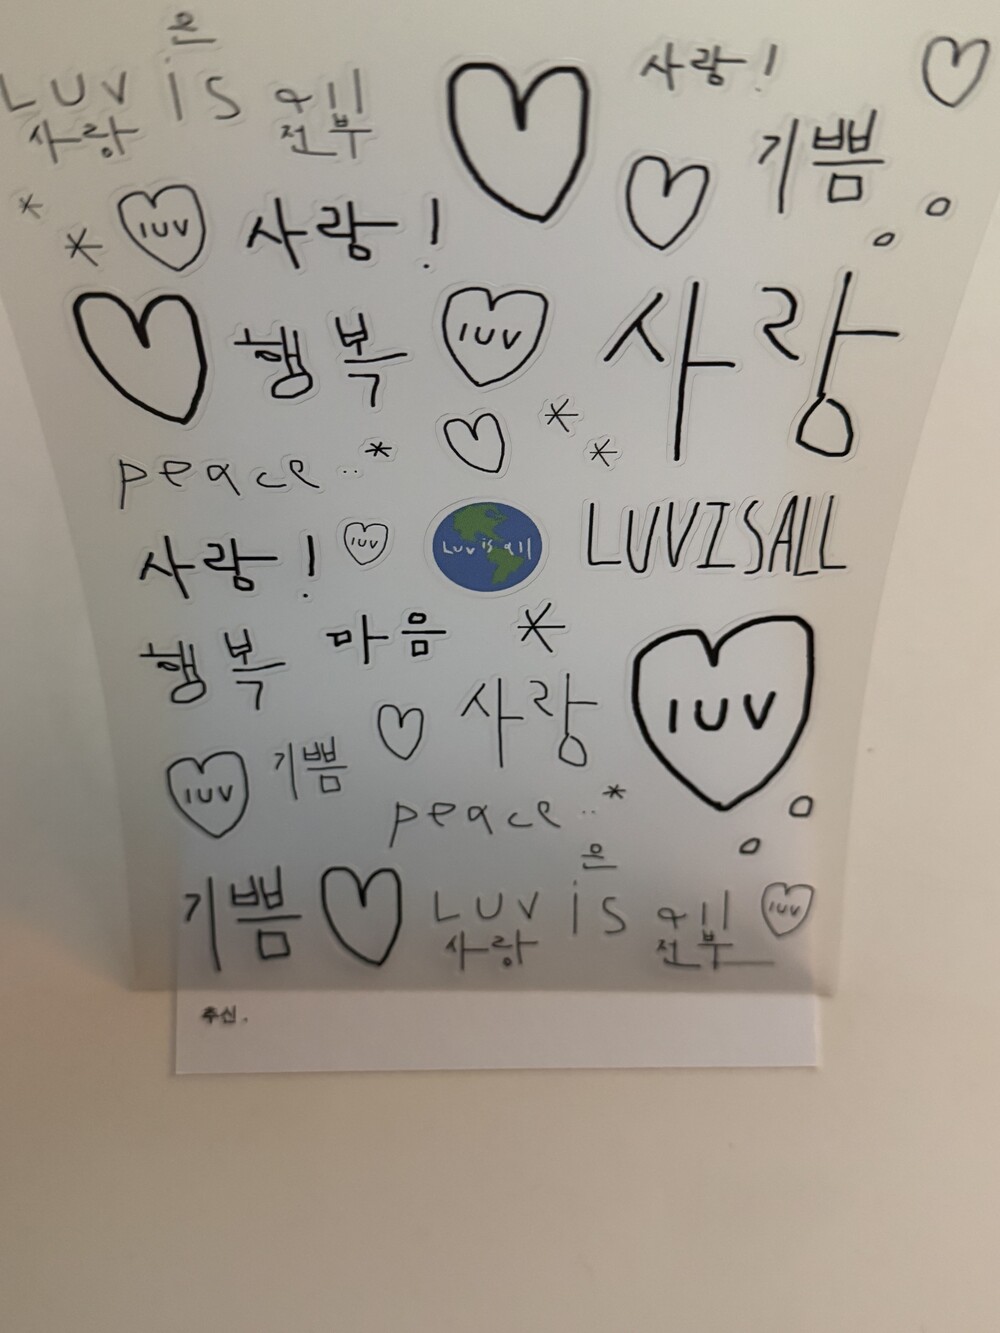 은
LUV is all
사랑 전부
사랑!
기쁨
luv
사랑!
행복
luv
사랑
peace..*
사랑!
luv
Luv is all
LUVISALL
행복
마음
사랑
luv
luv
기쁨
peace..*
은
기쁨
LUV is all
luv
사랑 전부
추신.